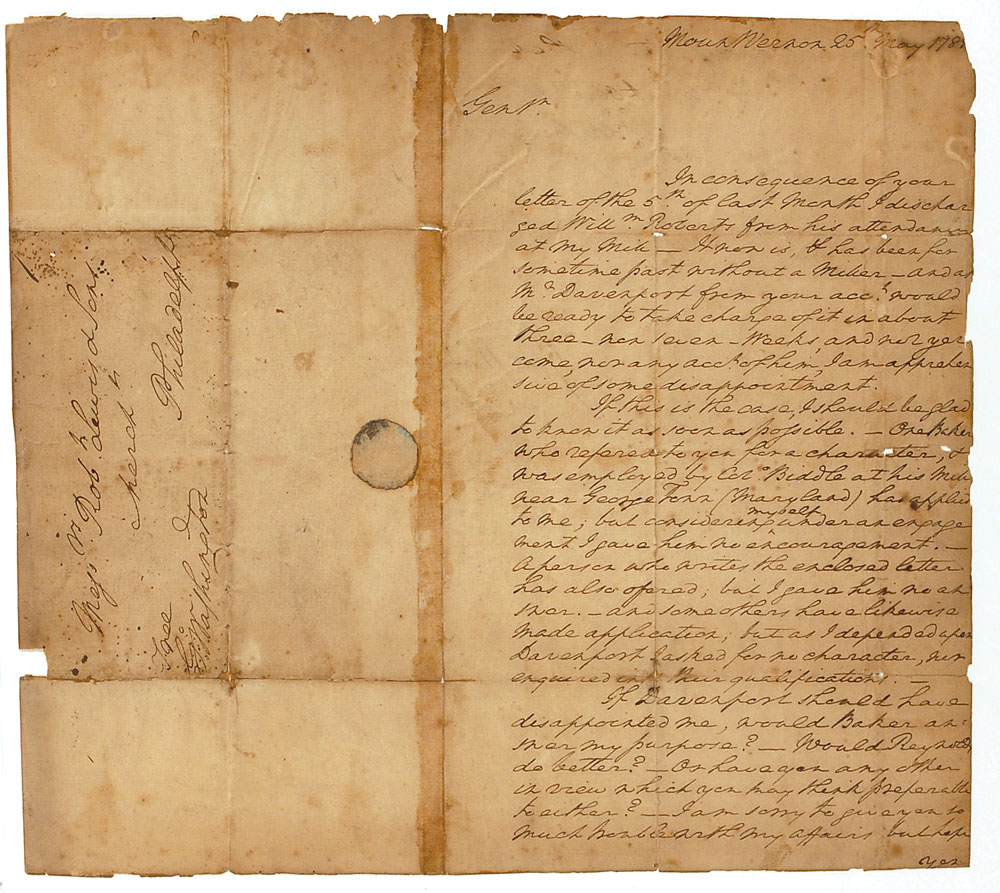 Mess.rs Rob.t Lewis & Sons
Merch.ts
Philadelph
Free
G:o Washington
Mount Vernon 25th May 178
Gentn.
In consequence of your
letter of the 5th of last Month I dischar
ged Will.m Roberts from his attendan
at my Mill — It now is, & has been for
sometime past without a Miller — and as
Mr Davenport from your acct. would
be ready to take charge of it in about
three — now seven — Weeks, and not yet
come, nor any acct. of him, I am apprehen
sive, of some disappointment.
If this is the case, I should be glad
to know it as soon as possible. — One Baker
who refered to you for a character, &
was employed by Colo. Biddle at his Mill
near George Town (Maryland) has applied
to me; but considering myself under an engage
ment I gave him no encouragement. —
A person who writes the enclosed letter
has also offered; but I gave him no an
swer. — and some others have likewise
made application; but as I depended upon
Davenport I asked for no character, nor
enquired into their qualification. —
If Davenport should have
disappointed me, would Baker an=
swer my purpose? — Would Reynolds
do better? — Or have you any other
in view which you may think preferable
to either? — I am sorry to give you so
much trouble with my affairs but hope
you